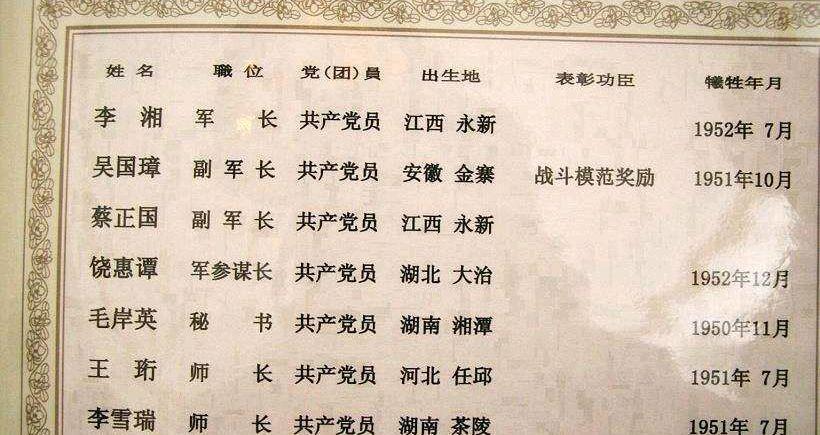 姓名 職位 党(团)員 出生地 表彰功臣 犧牲年月
李湘 军长 共产党员 江西 永新 1952年 7月
吴国璋 副军长 共产党员 安徽 金寨 战斗模范奖励 1951年10月
蔡正国 副军长 共产党员 江西 永新
饶惠谭 军参谋长 共产党员 湖北 大治 1952年12月
毛岸英 秘书 共产党员 湖南 湘潭 1950年11月
王珩 师长 共产党员 河北 任邱 1951年 7月
李雪瑞 师长 共产党员 湖南 茶陵 1951年 7月